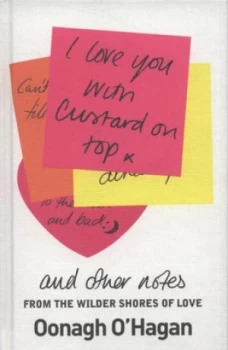 I love you
with
Custard on
top x
Can't
till
dinner
to the
and back
and other notes
FROM THE WILDER SHORES OF LOVE
Oonagh O'Hagan